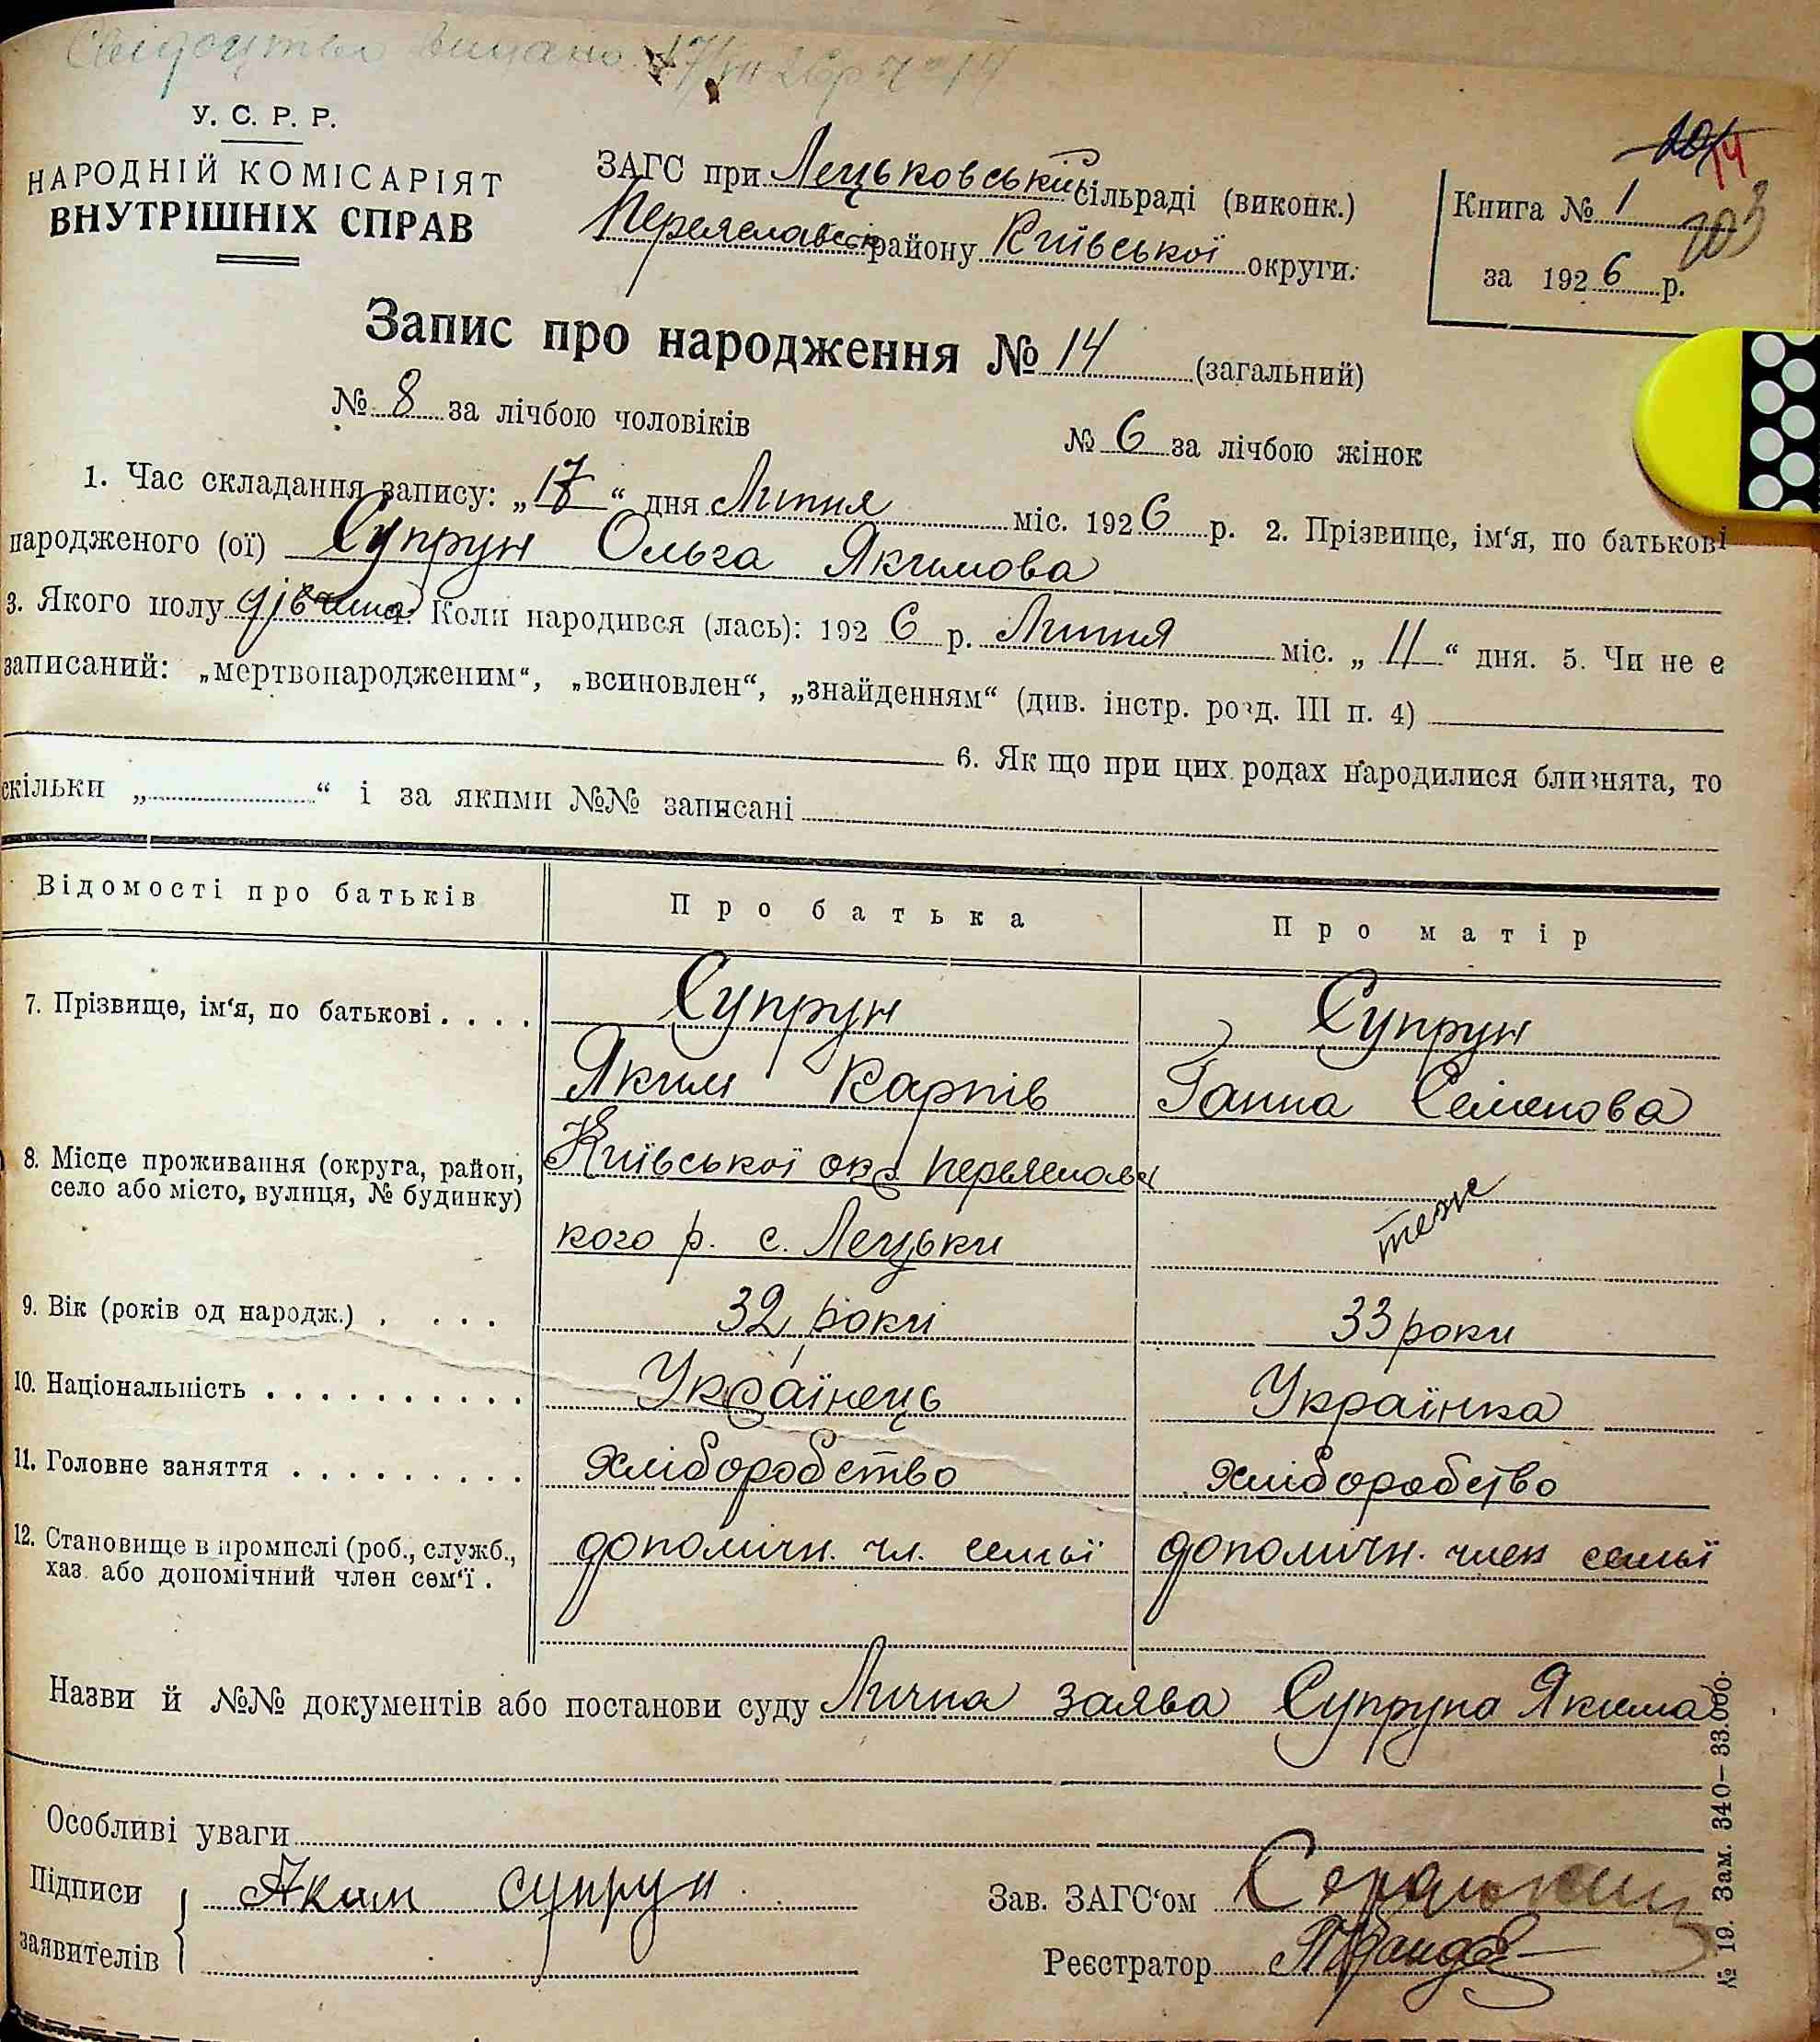 Свідоцтво видано 17/VII 26р № 14
У. С. Р. Р.
НАРОДНІЙ КОМІСАРІЯТ
ВНУТРІШНІХ СПРАВ
ЗАГС при Лецьковській сільраді (виконк.)
Переяславськ району Київської округи.
14
203
Книга № 1
за 1926 р.
Запис про народження № 14 (загальний)
№ 8 за лічбою чоловіків № 6 за лічбою жінок
1. Час складання запису: „17“ дня Липня міс. 1926 р. 2. Прізвище, ім‘я, по батькові
народженого (ої) Супрун Ольга Якимова
3. Якого полу дівчина Коли народився (лась): 1926 р. Липня міс. „11“ дня. 5. Чи не є
записаний: „мертвонародженим“, „всиновлен“, „знайденням“ (див. інстр. розд. III п. 4)
6. Як що при цих родах народилися близнята, то
скільки „ “ і за якими №№ записані
Відомості про батьків Про батька Про матір
7. Прізвище, ім‘я, по батькові . . . . Супрун Супрун
Яким Карпів Ганна Семенова
8. Місце проживання (округа, район, Київської окр. Переяславсь
село або місто, вулиця, № будинку) кого р. с. Лецьки теж
9. Вік (років од народж.) . . . . 32 роки 33 роки
10. Національність . . . . . . . . . . Українець Українка
11. Головне заняття . . . . . . . . . хліборобство хліборобство
12. Становище в промислі (роб., служб., допомічн. чл. семьї допомічн. член семьї
хаз. або допомічний член сем‘ї .
Назви й №№ документів або постанови суду Лична заява Супруна Якима
Особливі уваги
Підписи Яким Супрун Зав. ЗАГС‘ом
заявителів Реєстратор
№ 19. Зам. 340–33.000.